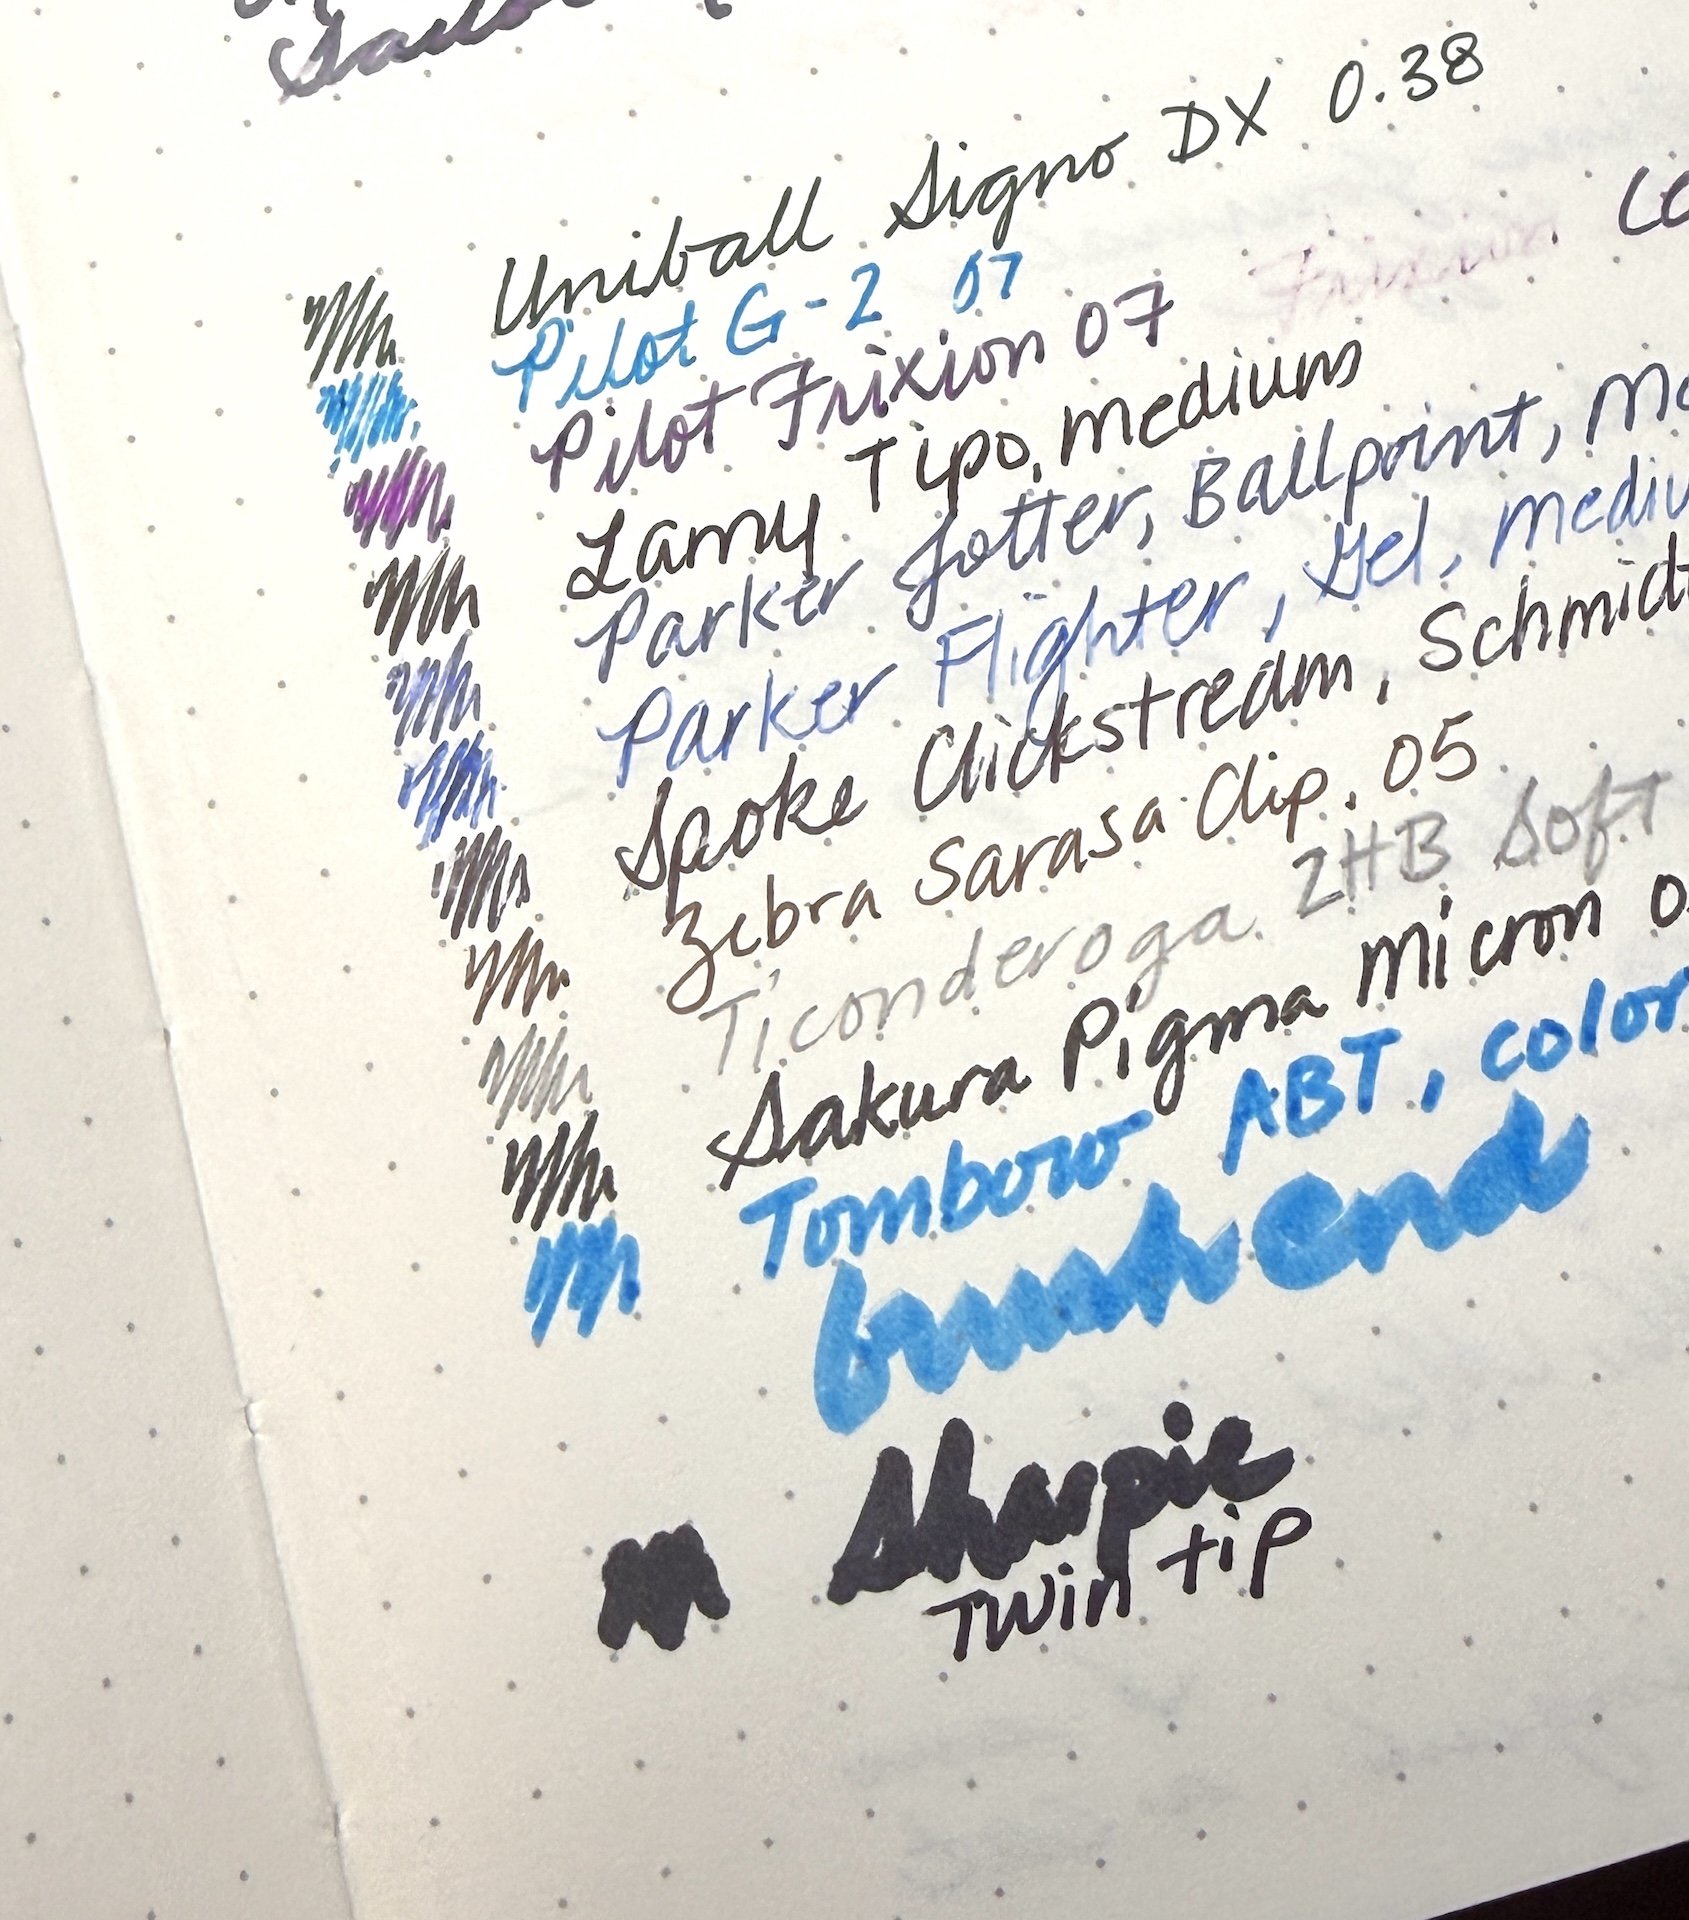 Uniball Signo DX 0.38
Pilot G-2 07
Pilot Frixion 07 Frixion
Lamy Tipo, medium
Parker Jotter, Ballpoint,
Parker Flighter, Gel,
Spoke Clickstream, Schmidt
Zebra Sarasa Clip. 05
Ticonderoga 2HB Soft
Sakura Pigma Micron
Tombow ABT, color
brush end
Sharpie
Twin tip